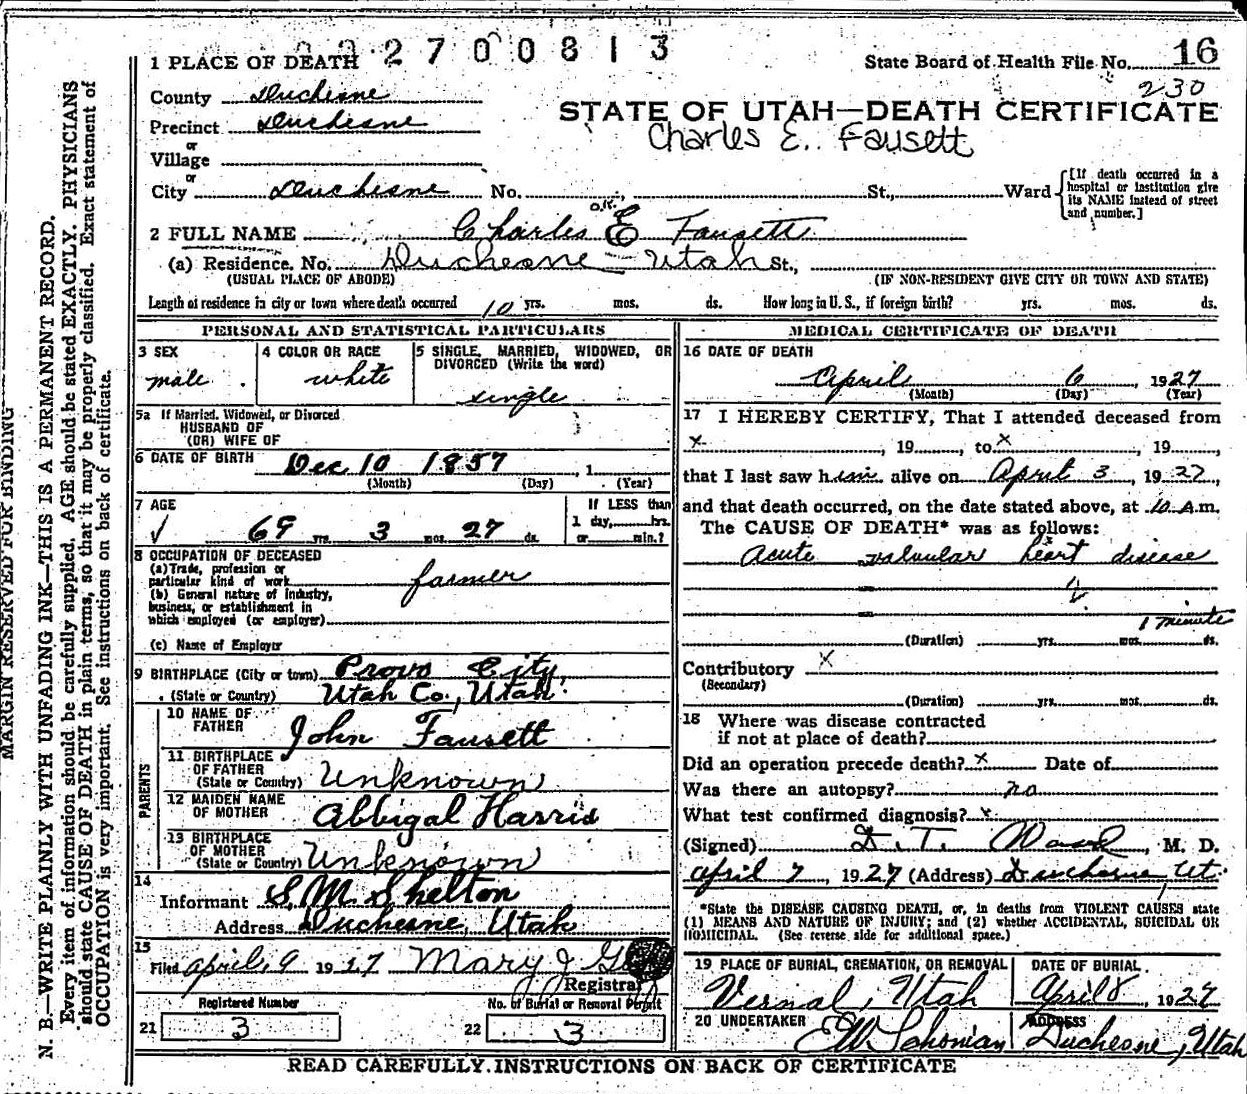 2 7 0 0 8 1 3
1 PLACE OF DEATH
State Board of Health File No. 16
230
County Duchesne
STATE OF UTAH—DEATH CERTIFICATE
Precinct Duchesne
Charles E. Fausett
or
Village
or
City Duchesne No. St., Ward
[If death occurred in a hospital or institution give its NAME instead of street and number.]
O.K.
2 FULL NAME Charles E Fausett
(a) Residence. No. Duchesne - Utah St.,
(USUAL PLACE OF ABODE) (IF NON-RESIDENT GIVE CITY OR TOWN AND STATE)
Length of residence in city or town where death occurred 10 yrs. mos. ds. How long in U. S., if foreign birth? yrs. mos. ds.
PERSONAL AND STATISTICAL PARTICULARS
3 SEX
male
4 COLOR OR RACE
white
5 SINGLE, MARRIED, WIDOWED, OR DIVORCED (Write the word)
single
5a If Married, Widowed, or Divorced
HUSBAND OF
(OR) WIFE OF
6 DATE OF BIRTH Dec 10 1857, 1
(Month) (Day) (Year)
7 AGE
69 yrs. 3 mos. 27 ds.
If LESS than
1 day, hrs.
or min.?
8 OCCUPATION OF DECEASED
(a) Trade, profession or
particular kind of work farmer
(b) General nature of industry,
business, or establishment in
which employed (or employer)
(c) Name of Employer
9 BIRTHPLACE (City or town) Provo City,
(State or Country) Utah Co., Utah.
PARENTS
10 NAME OF FATHER John Fausett
11 BIRTHPLACE OF FATHER
(State or Country) Unknown
12 MAIDEN NAME OF MOTHER Abbigal Harris
13 BIRTHPLACE OF MOTHER
(State or Country) Unknown
14
Informant S. M. Shelton
Address Duchesne, Utah
15
Filed April, 9 1927 Mary J
Registrar
Registered Number
21 3
No. of Burial or Removal Permit
22 3
MEDICAL CERTIFICATE OF DEATH
16 DATE OF DEATH
April 6, 1927
(Month) (Day) (Year)
17 I HEREBY CERTIFY, That I attended deceased from
x, 19, to x, 19
that I last saw him alive on April 3, 1927,
and that death occurred, on the date stated above, at 10 A.m.
The CAUSE OF DEATH* was as follows:
Acute valvular heart disease
1 minute
(Duration) yrs. mos. ds.
Contributory x
(Secondary)
(Duration) yrs. mos. ds.
18 Where was disease contracted
if not at place of death?
Did an operation precede death? x Date of
Was there an autopsy? no
What test confirmed diagnosis? x
(Signed) D. T. , M. D.
April 7, 1927 (Address) Duchesne, Ut.
*State the DISEASE CAUSING DEATH, or, in deaths from VIOLENT CAUSES state
(1) MEANS AND NATURE OF INJURY; and (2) whether ACCIDENTAL, SUICIDAL OR
HOMICIDAL. (See reverse side for additional space.)
19 PLACE OF BURIAL, CREMATION, OR REMOVAL
Vernal, Utah
DATE OF BURIAL
April 8, 1927
20 UNDERTAKER
E W Schonian
ADDRESS
Duchesne, Utah
READ CAREFULLY INSTRUCTIONS ON BACK OF CERTIFICATE
MARGIN RESERVED FOR BINDING
N. B.—WRITE PLAINLY WITH UNFADING INK—THIS IS A PERMANENT RECORD.
Every item of information should be carefully supplied. AGE should be stated EXACTLY. PHYSICIANS
should state CAUSE OF DEATH in plain terms, so that it may be properly classified. Exact statement of
OCCUPATION is very important. See instructions on back of certificate.